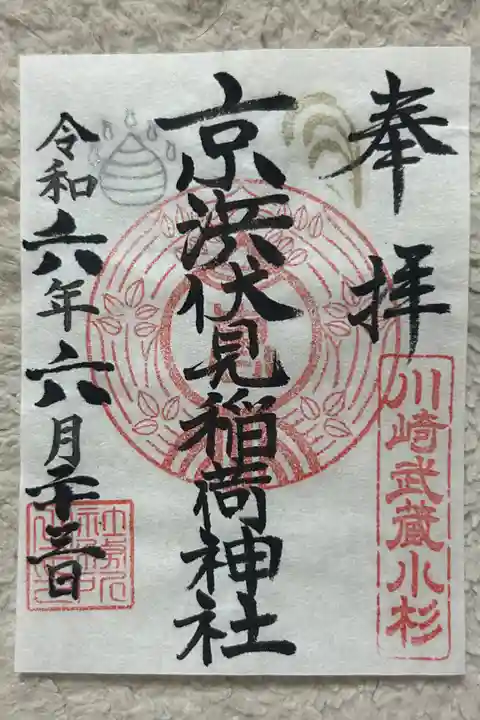 奉拝
川崎武蔵小杉
京浜伏見稲荷神社
令和六年六月二十三日
社務所
之印